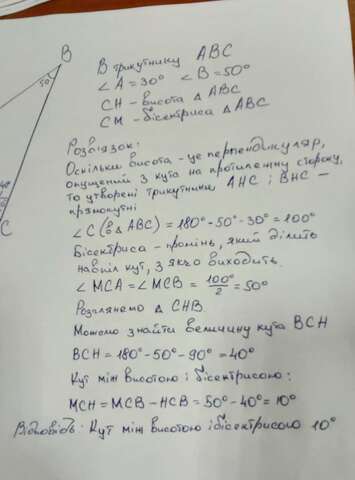 B
50°
40°
C
В трикутнику ABC
∠A = 30° ∠B = 50°
CH - висота △ ABC
CM - бісектриса △ ABC
Розв'язок:
Оскільки висота - це перпендикуляр,
опущений з кута на протилежну сторону,
то утворені трикутники AHC і BHC -
прямокутні
∠C (в △ ABC) = 180° - 50° - 30° = 100°
Бісектриса - промінь, який ділить
навпіл кут, з якго виходить.
∠MCA = ∠MCB = 100°/2 = 50°
Розглянемо △ CHB
Можемо знайти величину кута BCH
BCH = 180° - 50° - 90° = 40°
Кут між висотою і бісектрисою:
MCH = MCB - HCB = 50° - 40° = 10°
Відповідь: Кут між висотою і бісектрисою 10°